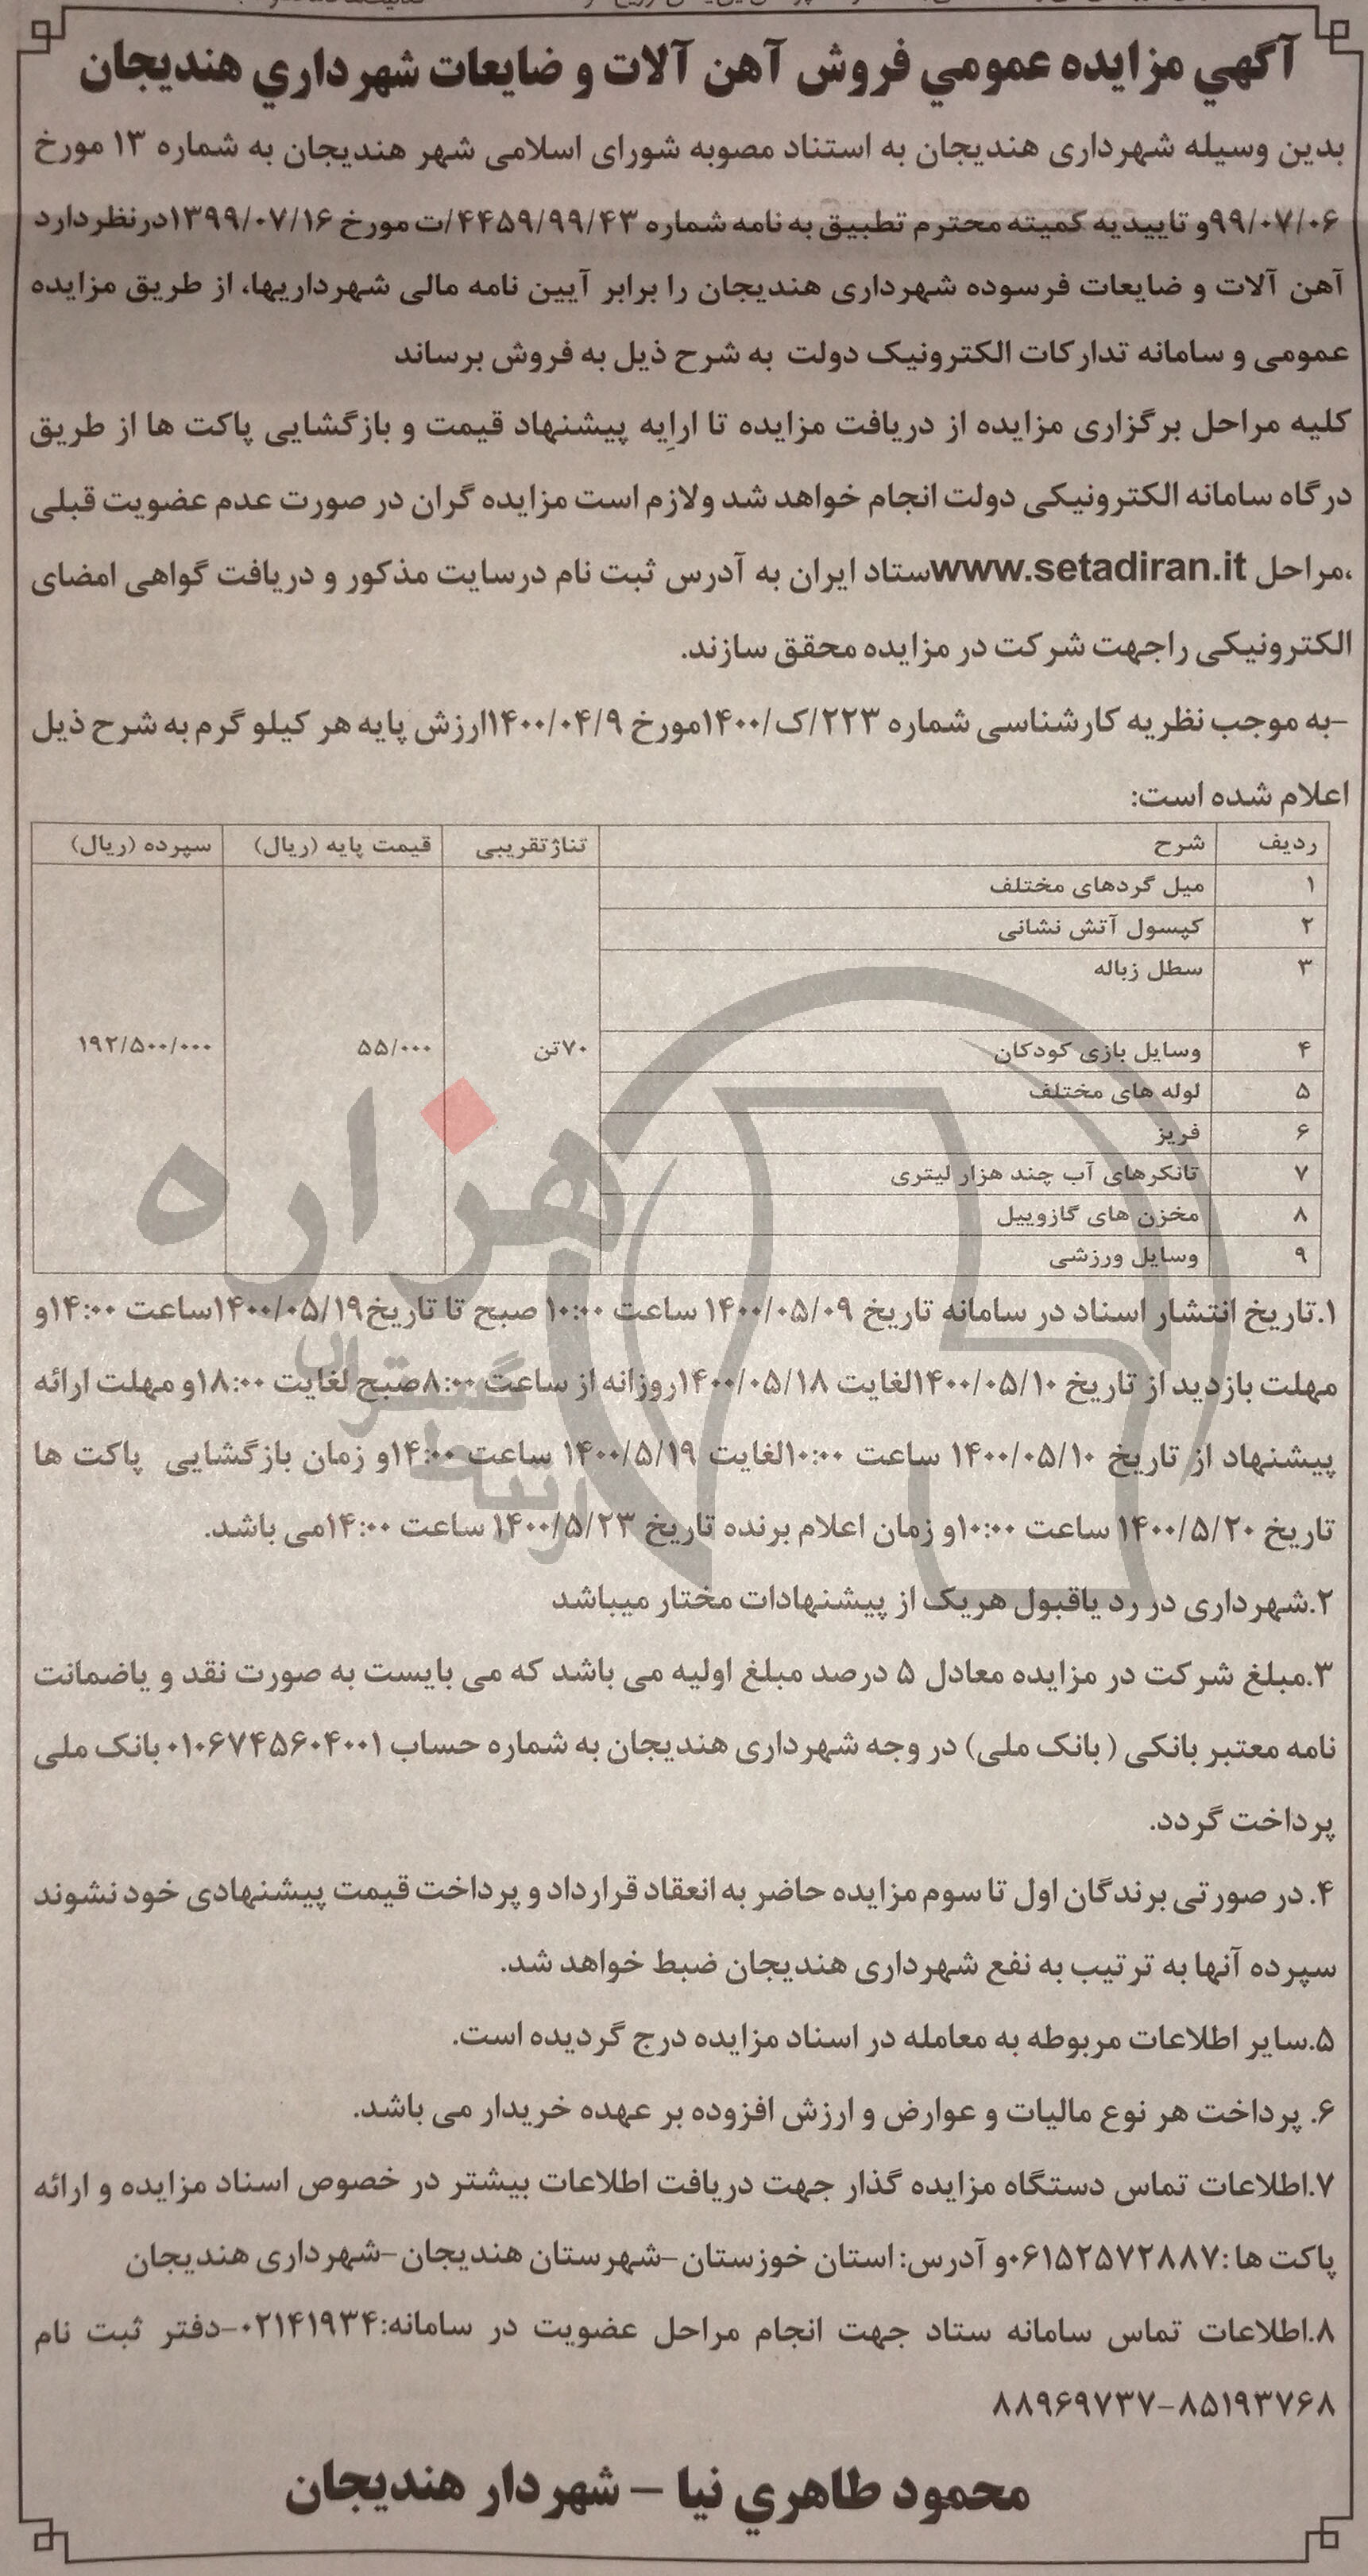 آگهي مزايده عمومي فروش آهن آلات و ضايعات شهرداري هنديجان
بدین وسیله شهرداری هندیجان به استناد مصوبه شورای اسلامی شهر هندیجان به شماره ۱۳ مورخ
۹۹/۰۷/۰۶و تاییدیه کمیته محترم تطبیق به نامه شماره ۴۴۵۹/۹۹/۴۳/ت مورخ ۱۳۹۹/۰۷/۱۶درنظردارد
آهن آلات و ضایعات فرسوده شهرداری هندیجان را برابر آیین نامه مالی شهرداریها، از طریق مزایده
عمومی و سامانه تدارکات الکترونیک دولت به شرح ذیل به فروش برساند
کلیه مراحل برگزاری مزایده از دریافت مزایده تا ارایِه پیشنهاد قیمت و بازگشایی پاکت ها از طریق
درگاه سامانه الکترونیکی دولت انجام خواهد شد ولازم است مزایده گران در صورت عدم عضویت قبلی
،مراحل www.setadiran.itستاد ایران به آدرس ثبت نام درسایت مذکور و دریافت گواهی امضای
الکترونیکی راجهت شرکت در مزایده محقق سازند.
-به موجب نظریه کارشناسی شماره ۲۲۳/ک/۱۴۰۰مورخ ۱۴۰۰/۰۴/۹ارزش پایه هر کیلو گرم به شرح ذیل
اعلام شده است:
ردیف شرح تناژتقریبی قیمت پایه (ریال) سپرده (ریال)
۱ میل گردهای مختلف
۲ کپسول آتش نشانی
۳ سطل زباله
۴ وسایل بازی کودکان ۷۰تن ۵۵/۰۰۰ ۱۹۲/۵۰۰/۰۰۰
۵ لوله های مختلف
۶ فریز
۷ تانکرهای آب چند هزار لیتری
۸ مخزن های گازوییل
۹ وسایل ورزشی
هزاره
۱.تاریخ انتشار اسناد در سامانه تاریخ ۱۴۰۰/۰۵/۰۹ ساعت ۱۰:۰۰ صبح تا تاریخ۱۴۰۰/۰۵/۱۹ساعت ۱۴:۰۰و
مهلت بازدید از تاریخ ۱۴۰۰/۰۵/۱۰لغایت ۱۴۰۰/۰۵/۱۸روزانه از ساعت ۸:۰۰صبح لغایت ۱۸:۰۰و مهلت ارائه
پیشنهاد از تاریخ ۱۴۰۰/۰۵/۱۰ ساعت ۱۰:۰۰لغایت ۱۴۰۰/۵/۱۹ ساعت ۱۴:۰۰و زمان بازگشایی پاکت ها
تاریخ ۱۴۰۰/۵/۲۰ ساعت ۱۰:۰۰و زمان اعلام برنده تاریخ ۱۴۰۰/۵/۲۳ ساعت ۱۴:۰۰می باشد.
۲.شهرداری در رد یاقبول هریک از پیشنهادات مختار میباشد
۳.مبلغ شرکت در مزایده معادل ۵ درصد مبلغ اولیه می باشد که می بایست به صورت نقد و یاضمانت
نامه معتبر بانکی ( بانک ملی) در وجه شهرداری هندیجان به شماره حساب ۰۱۰۶۷۴۵۶۰۴۰۰۱ بانک ملی
پرداخت گردد.
۴. در صورتی برندگان اول تا سوم مزایده حاضر به انعقاد قرارداد و پرداخت قیمت پیشنهادی خود نشوند
سپرده آنها به ترتیب به نفع شهرداری هندیجان ضبط خواهد شد.
۵.سایر اطلاعات مربوطه به معامله در اسناد مزایده درج گردیده است.
۶. پرداخت هر نوع مالیات و عوارض و ارزش افزوده بر عهده خریدار می باشد.
۷.اطلاعات تماس دستگاه مزایده گذار جهت دریافت اطلاعات بیشتر در خصوص اسناد مزایده و ارائه
پاکت ها :۰۶۱۵۲۵۷۲۸۸۷و آدرس: استان خوزستان-شهرستان هندیجان-شهرداری هندیجان
۸.اطلاعات تماس سامانه ستاد جهت انجام مراحل عضویت در سامانه:۰۲۱۴۱۹۳۴-دفتر ثبت نام
۸۸۹۶۹۷۳۷-۸۵۱۹۳۷۶۸
محمود طاهري نيا - شهردار هنديجان